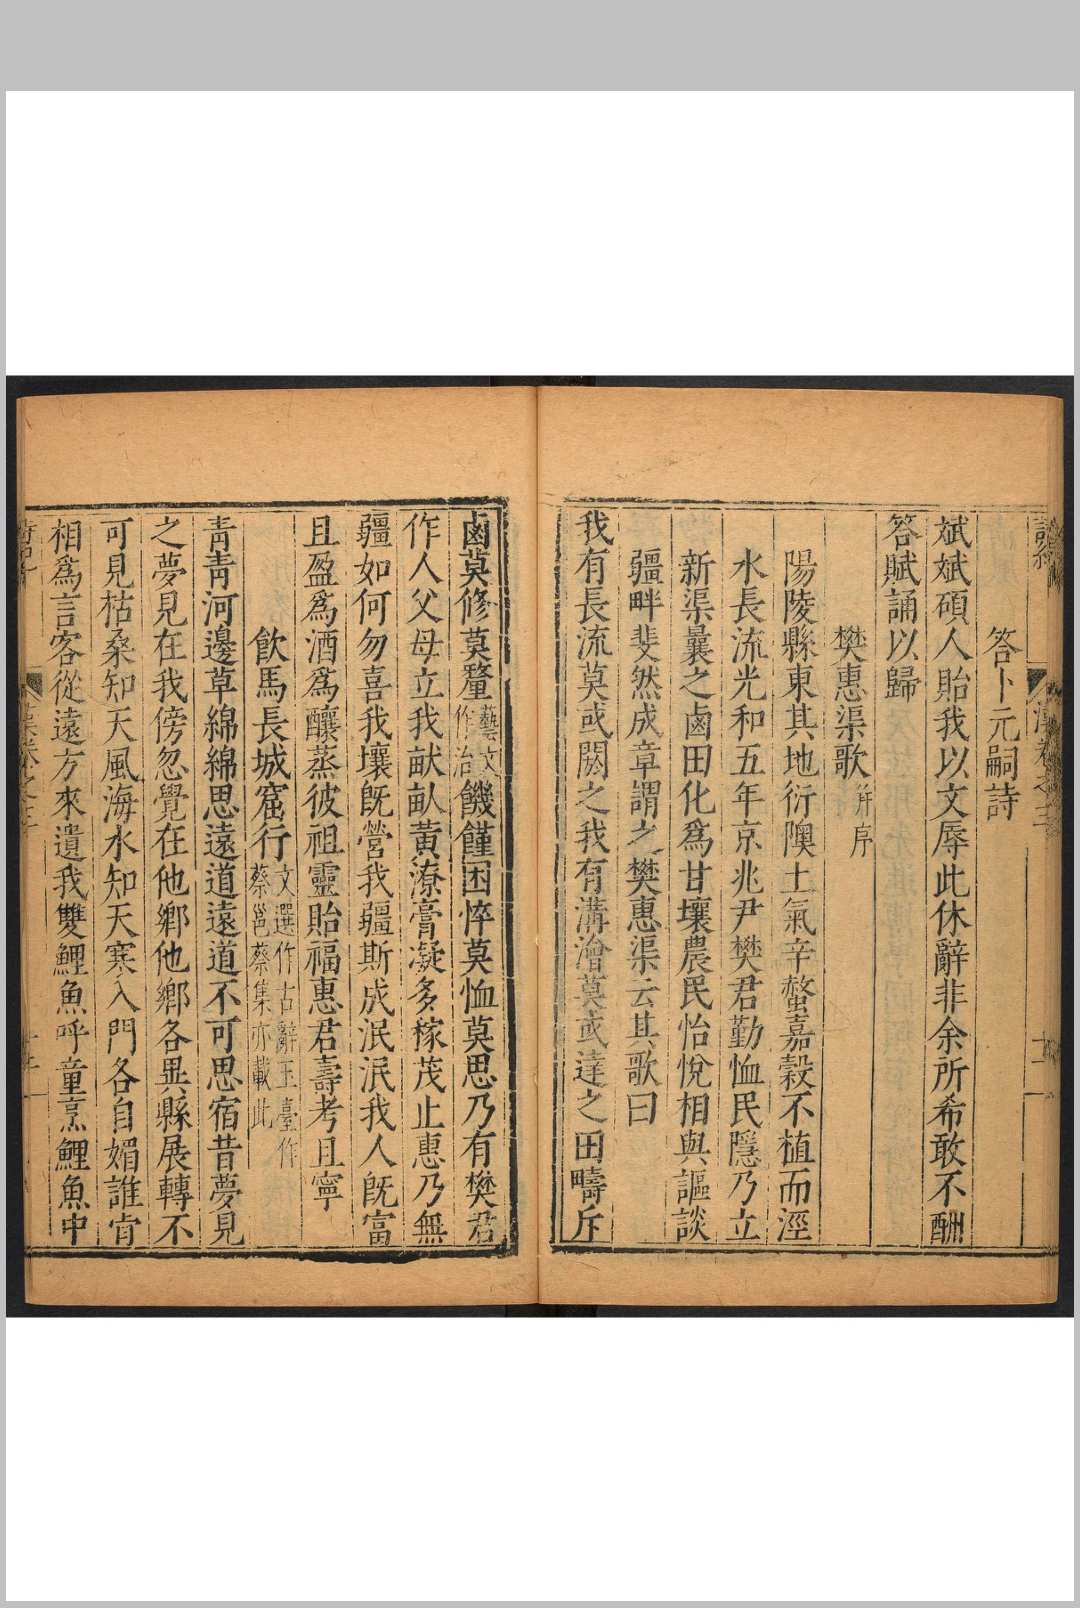 答卜元嗣詩
斌斌碩人貽我以文辱此休辭非余所希敢不酬
答賦誦以歸
樊惠渠歌并序
陽陵縣東其地衍隩土氣辛螫嘉穀不植而涇
水長流光和五年京兆尹樊君勤恤民隱乃立
新渠曩之鹵田化爲甘壤農民怡悅相與謳談
疆畔斐然成章謂之樊惠渠云其歌曰
我有長流莫或閼之我有溝澮莫或達之田疇斥
鹵莫修莫釐藝文作治饑饉困悴莫恤莫思乃有樊君
作人父母立我畎畝黃潦膏凝多稼茂止惠乃無
疆如何勿喜我壤旣營我疆斯成泯泯我人旣富
且盈爲酒爲釀蒸彼祖靈貽福惠君壽考且寧
飲馬長城窟行文選作古辭玉臺作蔡邕蔡集亦載此
靑靑河邊草綿綿思遠道遠道不可思宿昔夢見
之夢見在我傍忽覺在他鄉他鄉各異縣展轉不
可見枯桑知天風海水知天寒入門各自媚誰肯
相爲言客從遠方來遺我雙鯉魚呼童烹鯉魚中